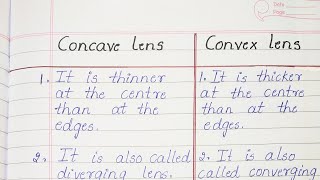 Date
Page
Concave lens
Convex lens
1. It is thinner
at the centre
than at the
edges.
2. It is also called
diverging lens.
1. It is thicker
at the centre
than at the
edges.
2. It is also
called converging